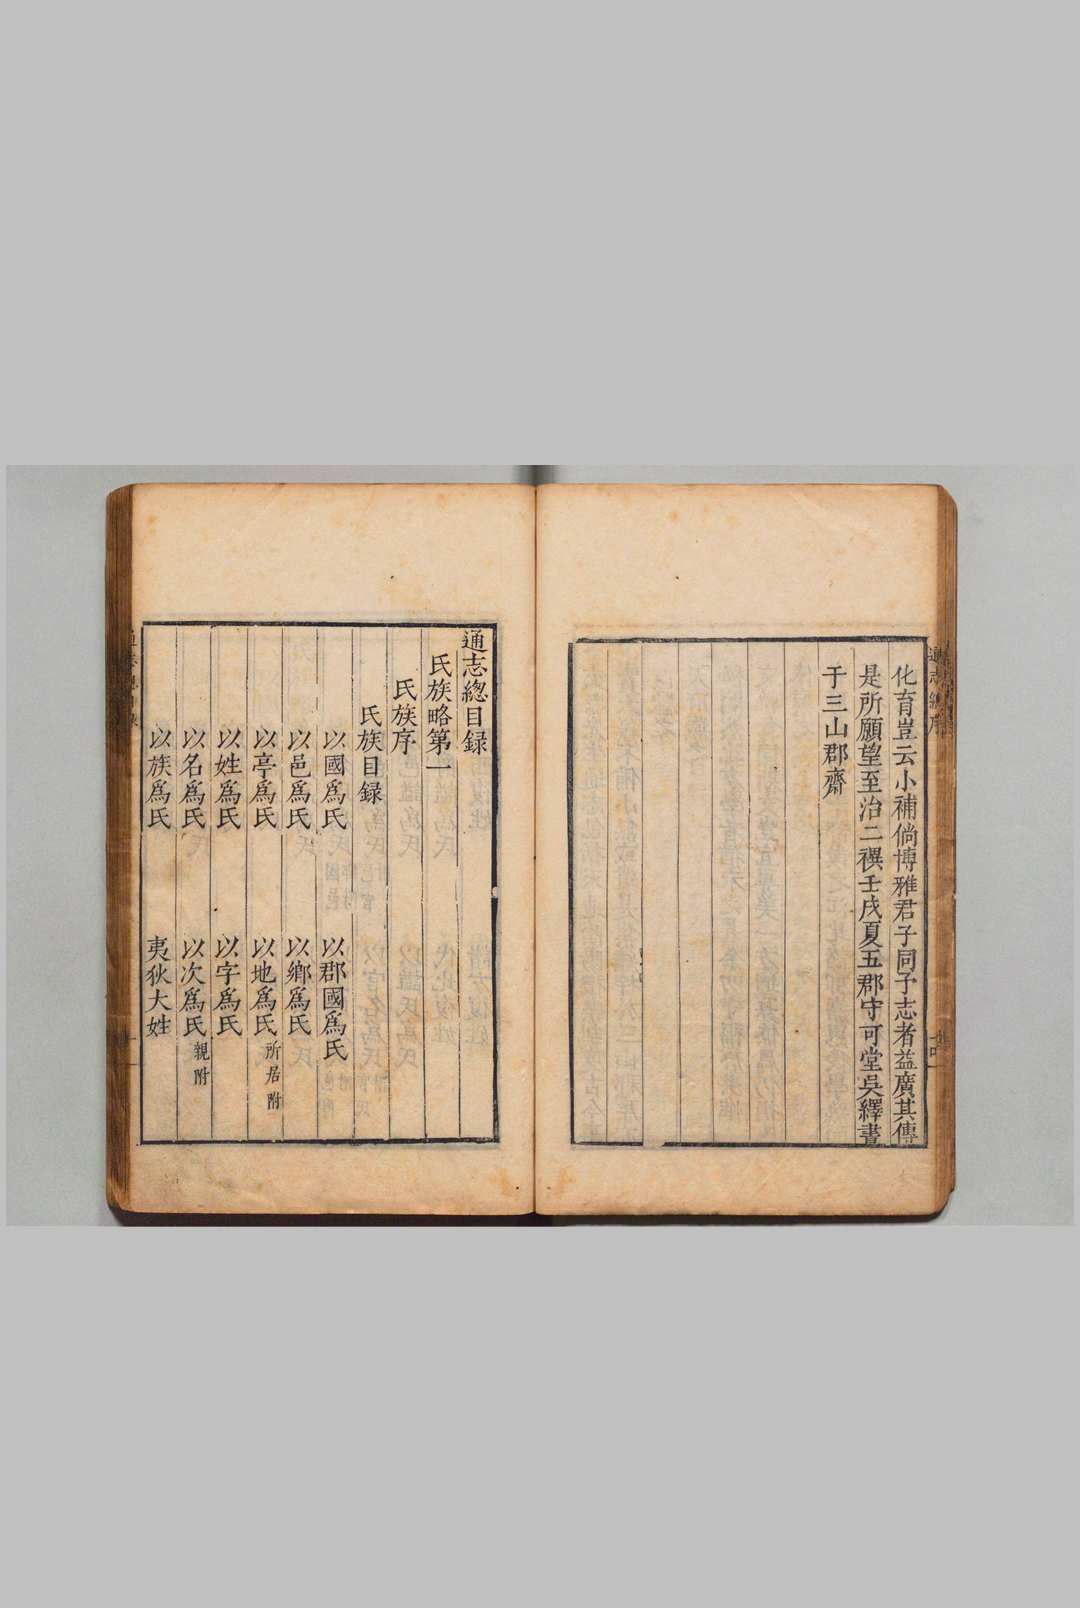 化育豈云小補倘博雅君子同予志者益廣其傳
是所願望至治二禩壬戌夏五郡守可堂吳繹書
于三山郡齋
通志總目録
氏族略第一
氏族序
氏族目録
以國爲氏　以郡國爲氏
以邑爲氏　以鄉爲氏
以亭爲氏　以地爲氏 所居附
以姓爲氏　以字爲氏
以名爲氏　以次爲氏 親附
以族爲氏　夷狄大姓